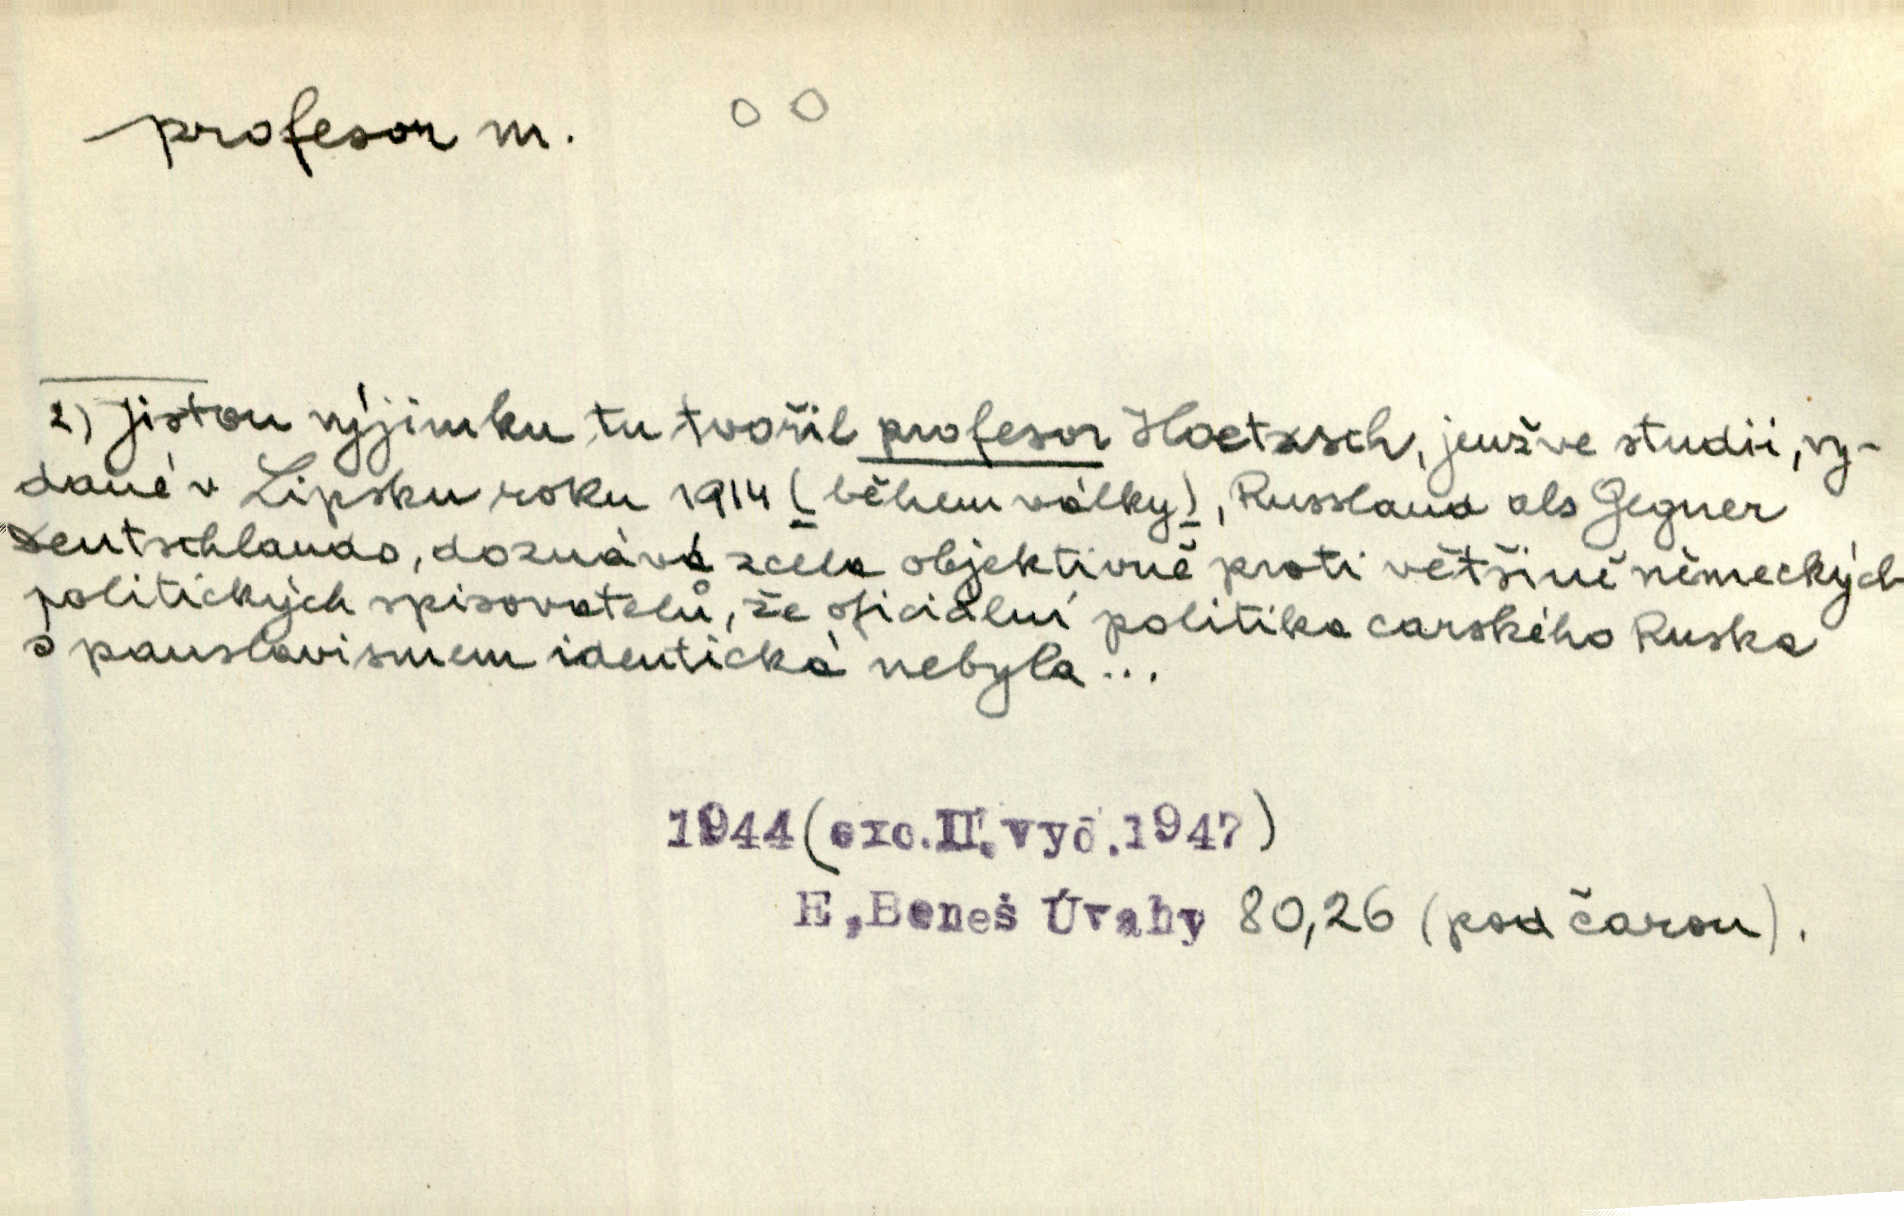 profesor m.
2) Jistou výjimku tu tvořil profesor Hoetzsch, jenž ve studii, vy-
dané v Lipsku roku 1914 (během války), Russland als Gegner
Deutschlands, doznává zcela objektivně proti většině německých
politických spisovatelů, že oficiální politika carského Ruska
s panslavismem identická nebyla...
1944 (exc. II. vyd. 1947)
E. Beneš Úvahy 80,26 (pod čarou).